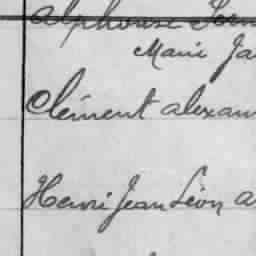 Alphonse Fern
Marie Ja
Clément alexan
Henri Jean Léon a